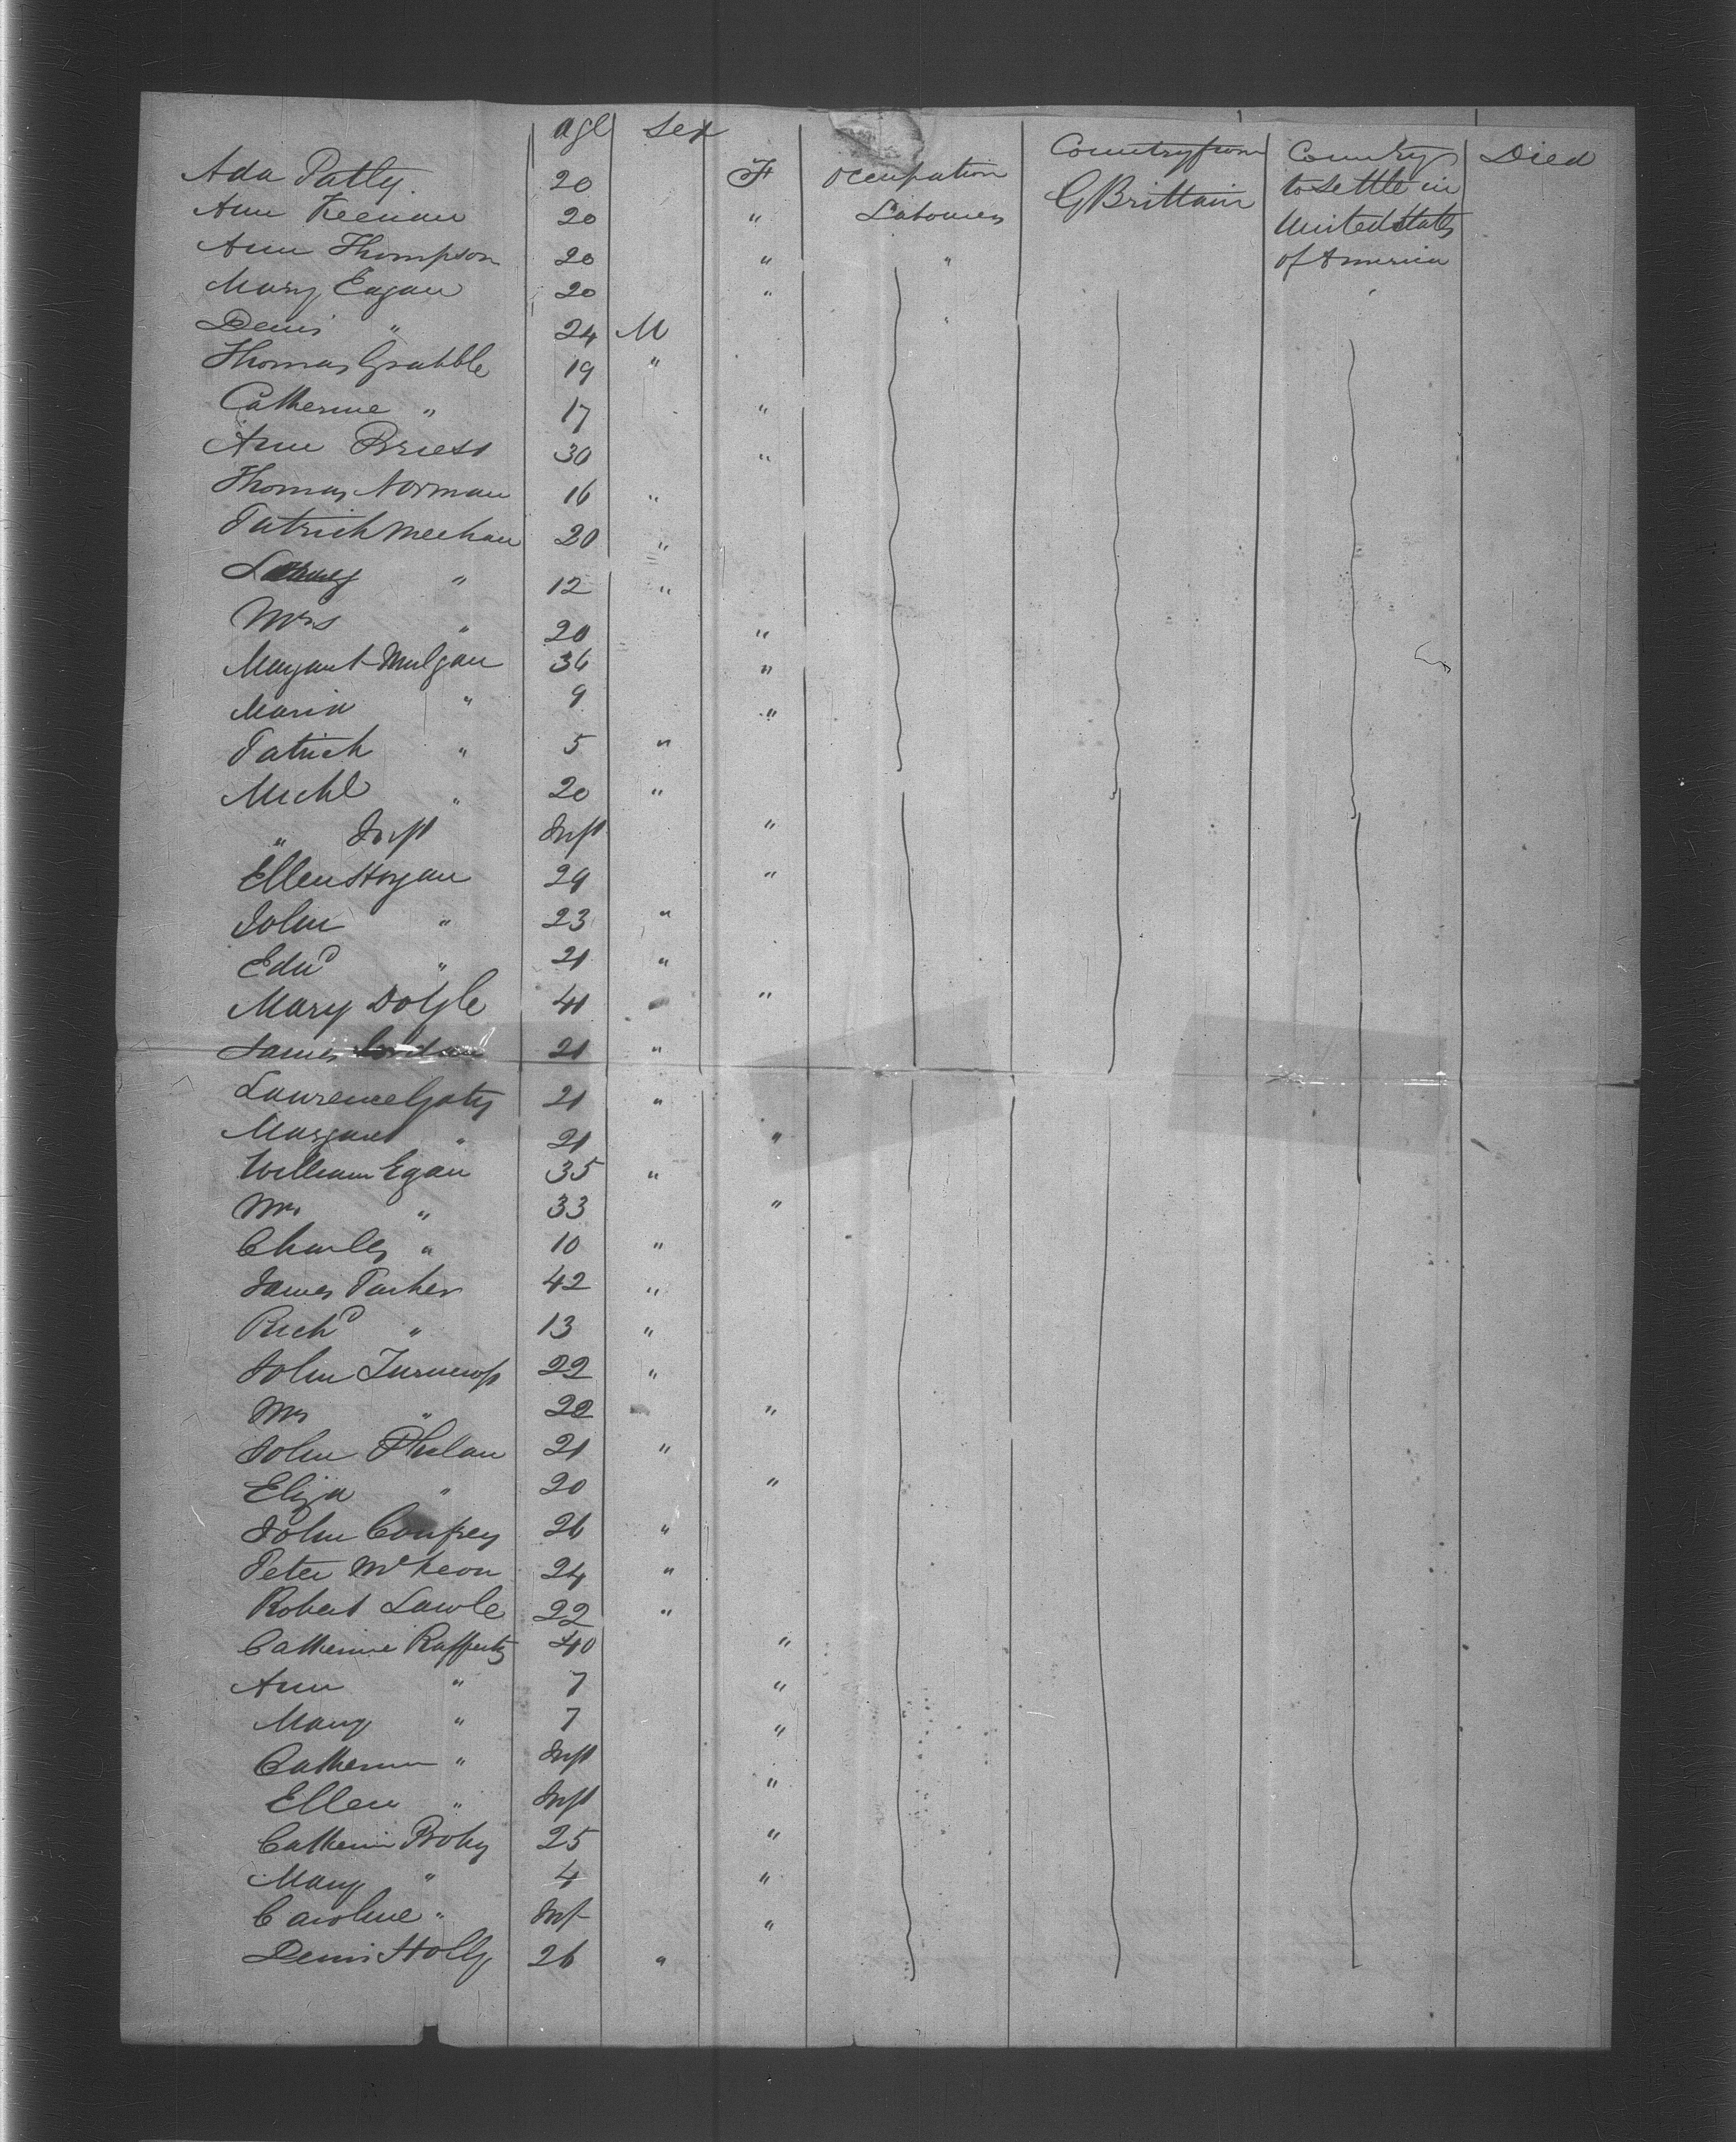 age Sex Occupation Country from Country to Settle in Died
Ada Patly. 20 F Labourer G Brittain United States of America
Ann Keenan 20 "
Ann Thompson 20 " "
Mary Eagan 20 "
Denis " 24 M "
Thomas Grabble 19 "
Catherine " 17 "
Ann Briest 30 "
Thomas Norman 16 "
Patrick Meehan 20 "
" 12 "
Mrs " 20 "
Margaret Mulgan 36 "
Maria " 9 "
Patrick " 5 "
Michl " 20 "
" Inft Inft "
Ellen Hogan 29 "
John " 23 "
Edwd " 21 "
Mary Doyle 41 "
James Jordan 21 "
Lawrence Gaty 21 "
Margaret " 21 "
William Egan 35 "
Mrs " 33 "
Charles " 10 "
James Parker 42 "
Richd " 13 "
John 22 "
Mrs " 22 "
John Phelan 21 "
Eliza " 20 "
John Confrey 26 "
Peter McKeon 24 "
Robert Lawle 22 "
Catherine Rafferty 40 "
Ann " 7 "
Mary " 7 "
Catherin " Inft "
Ellen " Inft "
Catherin Brohy 25 "
Mary " 4 "
Caroline " Inf "
Denis Holly 26 "